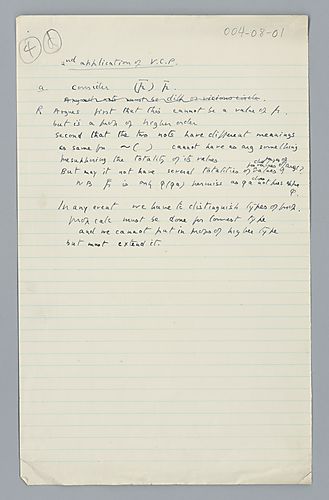 004-08-01
4
2nd application of V.C.P.
a. consider (p̄) p̄.
R Argues first that this cannot be a value of p.
but is a prop. of higher order
Second that the two nots have different meanings
as same for ~( ) cannot have as arg something
presupposing the totality of its values
But may it not have several totalities of values?
NB p̄ is only
In any event we have to distinguish types of prop.
prop calc must be done for lowest type
and we cannot put in props of higher type
but must extend it.